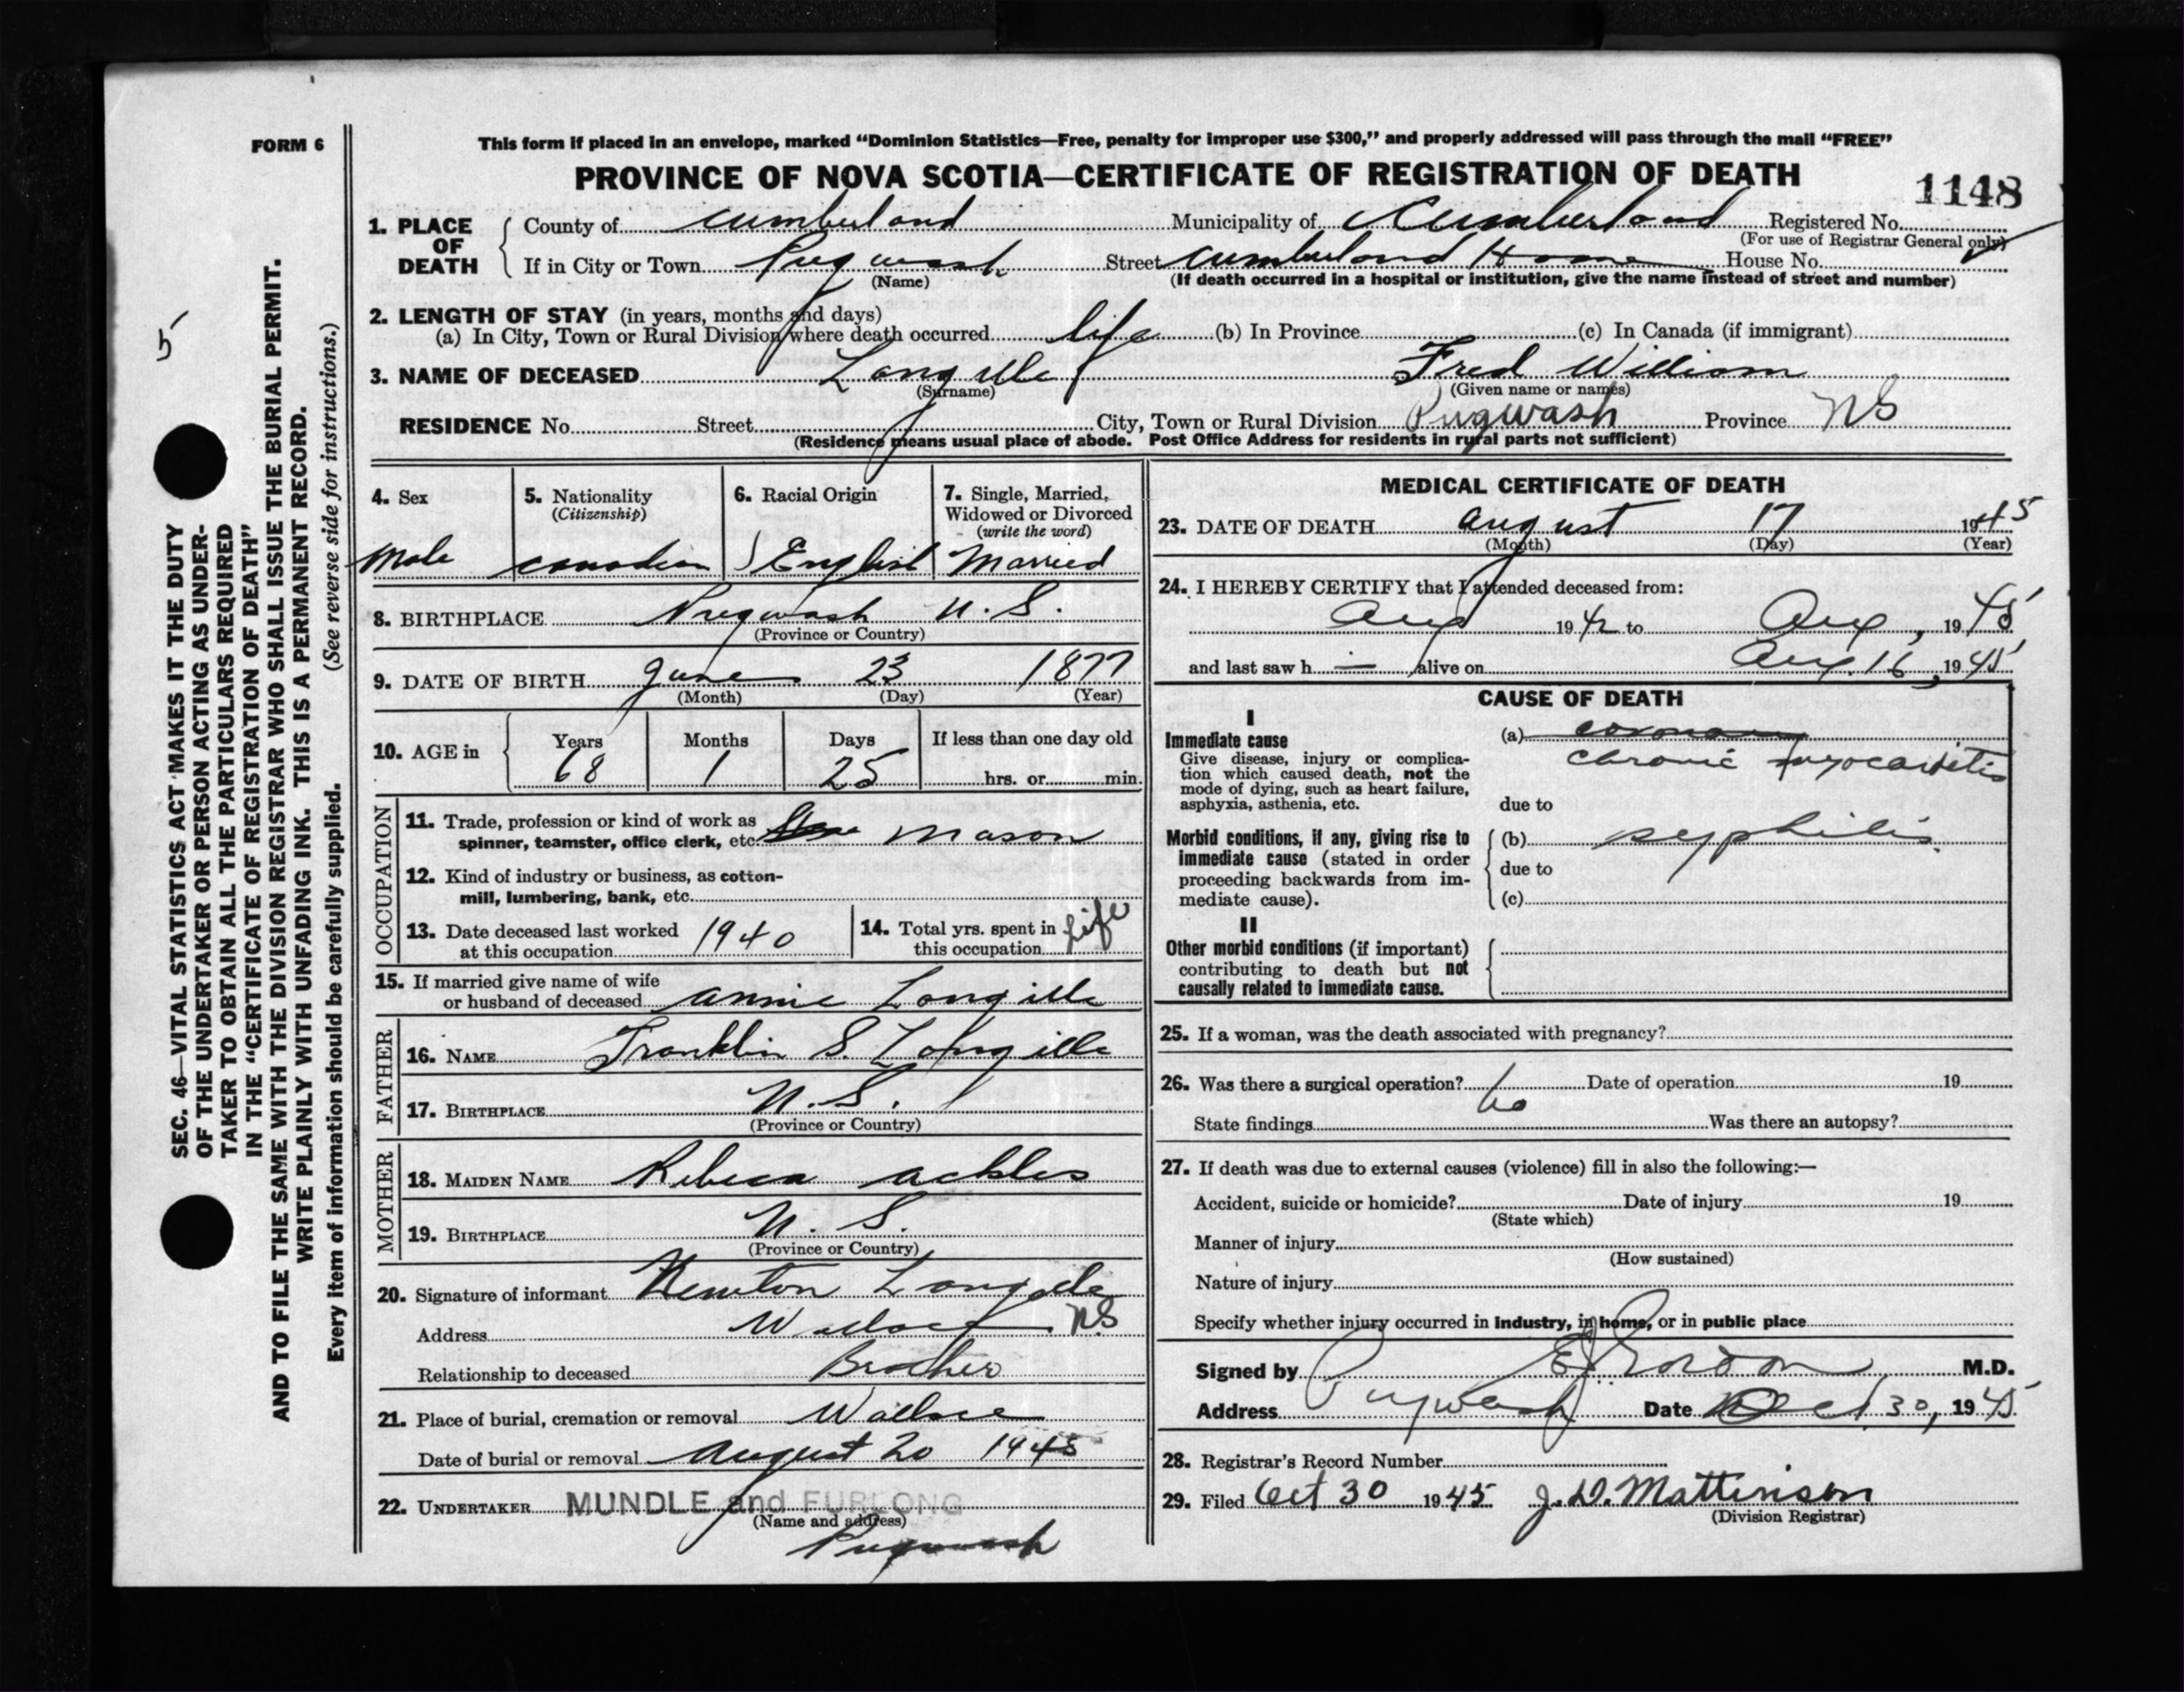 FORM 6
This form if placed in an envelope, marked “Dominion Statistics—Free, penalty for improper use $300,” and properly addressed will pass through the mail “FREE”
PROVINCE OF NOVA SCOTIA—CERTIFICATE OF REGISTRATION OF DEATH
1148
1. PLACE OF DEATH { County of Cumberland Municipality of Cumberland Registered No.
(For use of Registrar General only)
If in City or Town Pugwash Street Cumberland Home House No.
(Name) (If death occurred in a hospital or institution, give the name instead of street and number)
2. LENGTH OF STAY (in years, months and days)
(a) In City, Town or Rural Division where death occurred life (b) In Province (c) In Canada (if immigrant)
3. NAME OF DECEASED Langille Fred William
(Surname) (Given name or names)
RESIDENCE No. Street City, Town or Rural Division Pugwash Province NS
(Residence means usual place of abode. Post Office Address for residents in rural parts not sufficient)
4. Sex
Male
5. Nationality
(Citizenship)
Canadian
6. Racial Origin
English
7. Single, Married, Widowed or Divorced
(write the word)
Married
8. BIRTHPLACE Pugwash N. S.
(Province or Country)
9. DATE OF BIRTH June 23 1877
(Month) (Day) (Year)
10. AGE in { Years Months Days If less than one day old
68 1 25 hrs. or min.
OCCUPATION
11. Trade, profession or kind of work as
spinner, teamster, office clerk, etc. Mason
12. Kind of industry or business, as cotton-
mill, lumbering, bank, etc.
13. Date deceased last worked
at this occupation 1940
14. Total yrs. spent in
this occupation Life
15. If married give name of wife
or husband of deceased Annie Langille
FATHER
16. NAME Franklin S. Langille
17. BIRTHPLACE N. S.
(Province or Country)
MOTHER
18. MAIDEN NAME Rebeca Ackles
19. BIRTHPLACE N. S.
(Province or Country)
20. Signature of informant Newton Langille
Address Wallace NS
Relationship to deceased Brother
21. Place of burial, cremation or removal Wallace
Date of burial or removal August 20 1945
22. UNDERTAKER MUNDLE and FURLONG
(Name and address)
Pugwash
MEDICAL CERTIFICATE OF DEATH
23. DATE OF DEATH August 17 1945
(Month) (Day) (Year)
24. I HEREBY CERTIFY that I attended deceased from:
Aug 1942 to Aug, 1945
and last saw h — alive on Aug. 16, 1945
CAUSE OF DEATH
I
Immediate cause
Give disease, injury or complica-
tion which caused death, not the
mode of dying, such as heart failure,
asphyxia, asthenia, etc.
(a) coronary
chronic myocarditis
due to
Morbid conditions, if any, giving rise to
immediate cause (stated in order
proceeding backwards from im-
mediate cause).
(b) syphilis.
due to
(c)
II
Other morbid conditions (if important)
contributing to death but not
causally related to immediate cause.
25. If a woman, was the death associated with pregnancy?
26. Was there a surgical operation? No Date of operation 19
State findings Was there an autopsy?
27. If death was due to external causes (violence) fill in also the following:—
Accident, suicide or homicide? Date of injury 19
(State which)
Manner of injury
(How sustained)
Nature of injury
Specify whether injury occurred in industry, in home, or in public place
Signed by M.D.
Address Pugwash Date Oct 30, 1945
28. Registrar's Record Number
29. Filed Oct 30 1945 J. D. Mattinson
(Division Registrar)
5
SEC. 46—VITAL STATISTICS ACT MAKES IT THE DUTY
OF THE UNDERTAKER OR PERSON ACTING AS UNDER-
TAKER TO OBTAIN ALL THE PARTICULARS REQUIRED
IN THE “CERTIFICATE OF REGISTRATION OF DEATH”
AND TO FILE THE SAME WITH THE DIVISION REGISTRAR WHO SHALL ISSUE THE BURIAL PERMIT.
WRITE PLAINLY WITH UNFADING INK. THIS IS A PERMANENT RECORD.
Every item of information should be carefully supplied. (See reverse side for instructions.)